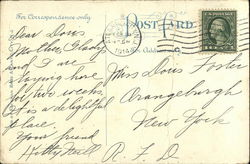 For Correspondence only
POST CARD
Dear Doris
Mother, Gladys
and I are
staying here
for two weeks
it is a delightful
place.
Your friend
Miss Doris Foster
Orangeburgh
New York
R. F. D